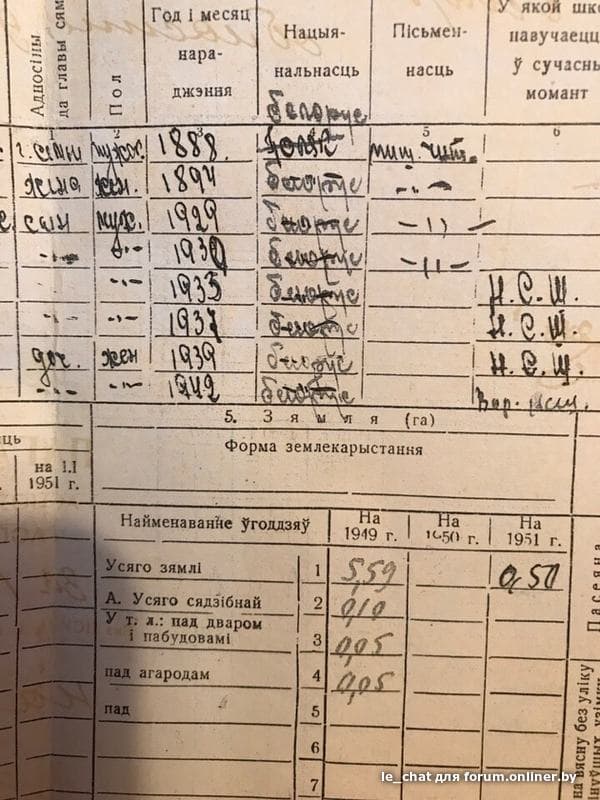 Адносіны да главы сям
Пол
Год і месяц нараджэння
Нацыянальнасць
Пісьменнасць
У якой шко
навучаецц
ў сучасны
момант
белорус
1 2 3 4 5 6
муж. 1888. пиш. чит.
жена жен. 1894 белорус -"-
сын муж. 1929 белорус -"-
-"- -"- 1930 белорус -"-
-"- 1935 белорус Н. С. Ш.
-"- 1937 белорус Н. С. Ш.
доч. жен 1939 белорус Н. С. Ш.
-"- -"- 1942 белорус
5. Зямля (га)
Форма землекарыстання
на І.І
1951 г.
Найменаванне ўгоддзяў На 1949 г. На 1950 г. На 1951 г.
Усяго зямлі 1 5,59 0,50
А. Усяго сядзібнай 2 0,10
У т. л.: пад дваром
і пабудовамі 3 0,05
пад агародам 4 0,05
пад 5
6
7
Пасеяна
на вясну без уліку
le_chat для forum.onliner.by